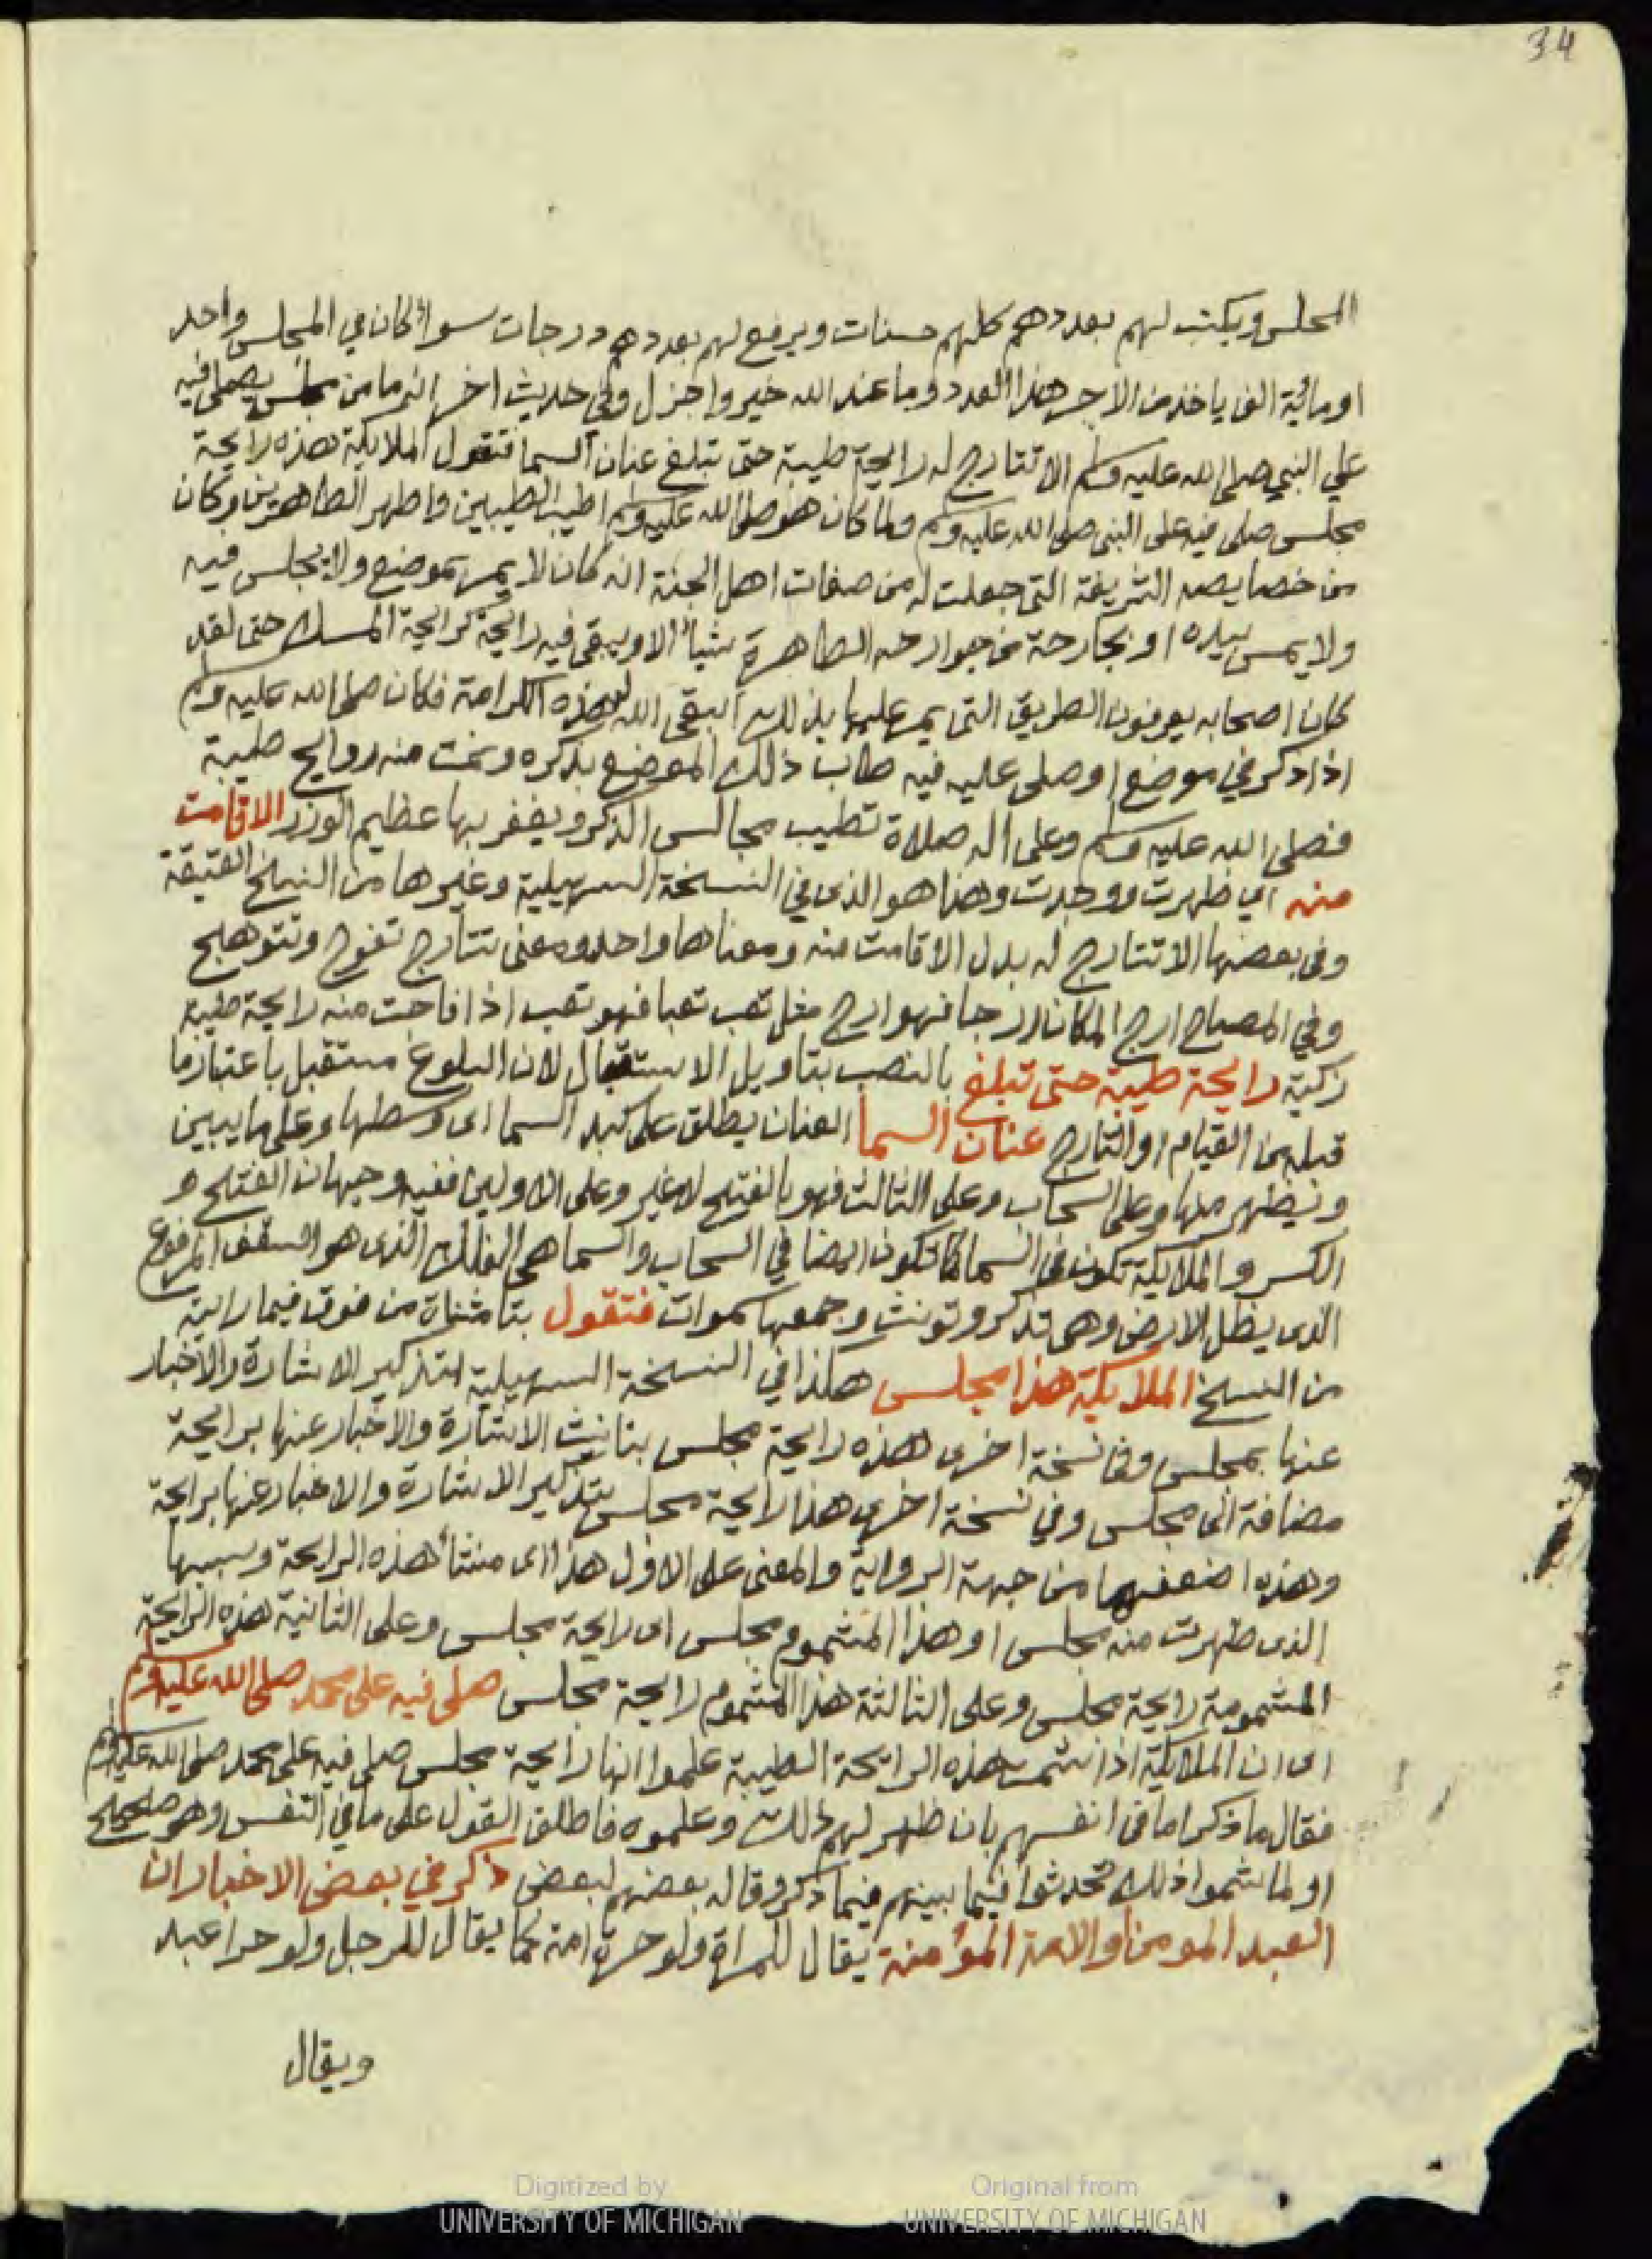 34
المجلس ويكتب لهم بعددهم كلهم حسنات ويرفع لهم بعددهم درجات سواء كان في المجلس واحد
او مائية الف ياخذ من الاجر هذا العدد وما عند الله خير واجزل وفي حديث اخر انه ما من مجلس يصلى فيه
على النبي صلى الله عليه وسلم الا تتارج له رايحة طيبة حتى تبلغ عنان السما فتقول الملايكة هذه رايحة
مجلس صلى فيه على النبي صلى الله عليه وسلم ولما كان هو صلى الله عليه وسلم اطيب الطيبين واطهر الطاهرين وكان
من خصايصه الشريفة التي جعلت له من صفات اهل الجنة انه كان لا يمر بموضع ولا يجلس فيه
ولا يمس بيده او بجارحة من جوارحه الطاهرة شيأ الا ويبقى فيه رايحة كرايحة المسك حتى لقد
كان اصحابه يعرفون الطريق التي يمر عليها بذلك ابقى الله له هذه الكرامة فكان صلى الله عليه وسلم
اذا ذكر في موضع او صلى عليه فيه طاب ذلك الموضع بذكره ونمت منه روايح طيبة
فصلى الله عليه وسلم وعلى اله صلاة تطيب مجالس الذكر ويغفر بها عظيم الوزر الا قامت
منه اي ظهرت ووجدت وهذا هو الذي في النسخة السهيلية وغيرها من النسخ العتيقة
وفي بعضها الا تتارج له بدل الا قامت منه ومعناها واحد ومعنى تتارج تفوح وتتوهج
وفي المصباح ارج المكان ارجا فهو ارج مثل تعب تعبا فهو تعب اذا فاحت منه رايحة طيبة
زكية رايحة طيبة حتى تبلغ بالنصب بتاويل الاستقبال لان البلوغ مستقبل باعتبار ما
قبله من القيام او التارج عنان السما العنان يطلق على كبد السما اى وسطها وعلى ما يبين
ويظهر منها وعلى السحاب وعلى الثالث فهو بالفتح لا غير وعلى الاولين ففيه وجهان الفتح و
الكسر والملايكة تكون في السما كما تكون ايضا في السحاب والسما هي الفلك الذي هو السقف المرفوع
الذى يظل الارض وهى تذكر وتونث وجمعها سموات فتقول بتا مثناة من فوق فيما رايته
من النسخ الملايكة هذا مجلس هكذا في النسخة السهيلية بتذكير الاشارة والاخبار
عنها بمجلس وفي نسخة اخرى هذه رايحة مجلس بتانيث الاشارة والاخبار عنها برايحة
مضافة الى مجلس وفي نسخة اخرى هذا رايحة مجلس بتذكير الاشارة والاخبار عنها برايحة
وهذه اضعفها من جهة الرواية والمعنى على الاول هذا اى منشأ هذه الرايحة وسببها
الذى ظهرت منه مجلس او هذا المشموم مجلس اى رايحة مجلس وعلى الثانية هذه الرايحة
المشمومة رايحة مجلس وعلى الثالثة هذا المشموم رايحة مجلس صلى فيه على محمد صلى الله عليه وسلم
اى ان الملايكة اذا شمت هذه الرايحة الطيبة علموا انها رايحة مجلس صلى فيه على محمد صلى الله عليه وسلم
فقال ما ذكر اما في انفسهم بان ظهر لهم ذلك وعلموه فاطلق القول على ما في النفس وهو صحيح
او لما شموا ذلك تحدثوا فيما بينهم فيما ذكر وقاله بعضهم لبعض ذكر في بعض الاخبار ان
العبد المومن او الامة المؤمنة يقال للمراة ولو حرة امة كما يقال للرجل ولو حرا عبد
ويقال
Digitized by
UNIVERSITY OF MICHIGAN
Original from
UNIVERSITY OF MICHIGAN